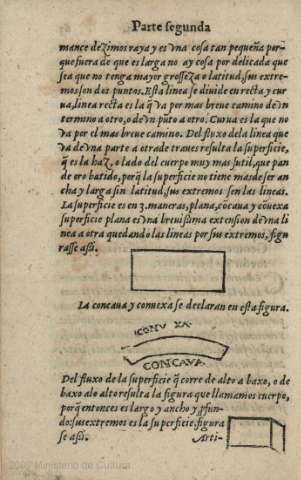 Parte segunda
mance dezimos raya y es vna cosa tan pequeña por-
que fuera de que es larga no ay cosa por delicada que
sea que no tenga mayor grosseza o latitud, sus extre-
mos son dos puntos. Esta linea se divide en recta y cur
ua, linea recta es la q̃ va por mas breue camino de vn
termino a otro, o de vn pũto a otro. Curua es la que no
va por el mas breue camino. Del fluxo de la linea que
va de vna parte a otra de traues resulta la superficie,
q̃ es la haz, o lado del cuerpo muy mas sutil, que pan
de oro batido, porq̃ la superficie no tiene mas de ser an
cha y larga sin latitud, sus extremos son las lineas.
La superficie es en 3. maneras, plana, cõcaua y cõuexa
superficie plana es vna breuissima extension de vna li
nea a otra quedando las lineas por sus extremos, figu
rasse assi.
La concaua y conuexa se declaran en esta figura.
CONV XA.
CONCAVA.
Del fluxo de la superficie q̃ corre de alto a baxo, o de
baxo alo alto resulta la figura que llamamos cuerpo,
porq̃ entonces es largo y ancho y ꝓfun-
do: sus extremos es la superficie, figura
se assi.
Arti-
2007 Ministerio de Cultura